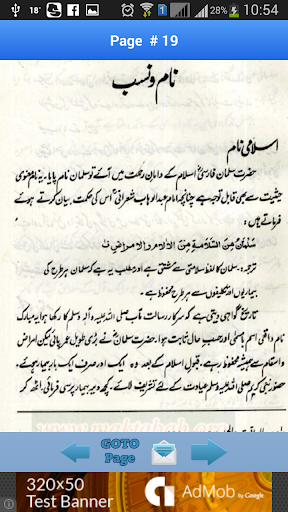 18°
28%
10:54
Page # 19
نام و نسب
اسلامی نام
حضرت سلمان فارسیؓ اسلام کے دامان رحمت میں آئے تو سلمان نام پایا۔ یہ نام معنوی
حیثیت سے بھی قابل توجہ ہے چنانچہ امام عبدالوہاب شعرانیؒ اس کی حکمت بیان کرتے ہوئے
فرماتے ہیں:
سلمان من السلامة من الآلام والامراض
ترجمہ۔ سلمان کا لفظ سلامتی سے مشتق ہے اور مطلب یہ ہے کہ سلمان ہر طرح کی
بیماریوں اور تکلیفوں سے ہر طرح محفوظ ہے۔
تاریخ گواہی دیتی ہے کہ سرکار رسالت مآب صلی اللہ علیہ وآلہ وسلم کا رکھا ہوا یہ مبارک
نام واقعی اسم بامسمیٰ اور حسب حال ثابت ہوا۔ حضرت سلمانؓ نے بڑی طویل عمر پائی لیکن امراض
و اسقام سے ہمیشہ محفوظ رہے۔ قبول اسلام کے بعد وہ ایک اور صرف ایک بار بیمار ہوئے،
حضور نبی کریم صلی اللہ علیہ وسلم عیادت کے لئے تشریف لائے۔ کچھ دیر بیمار پرسی فرمائی، اٹھ کر
www.maktabah.org
GOTO
Page
320x50
Test Banner
AdMob by Google